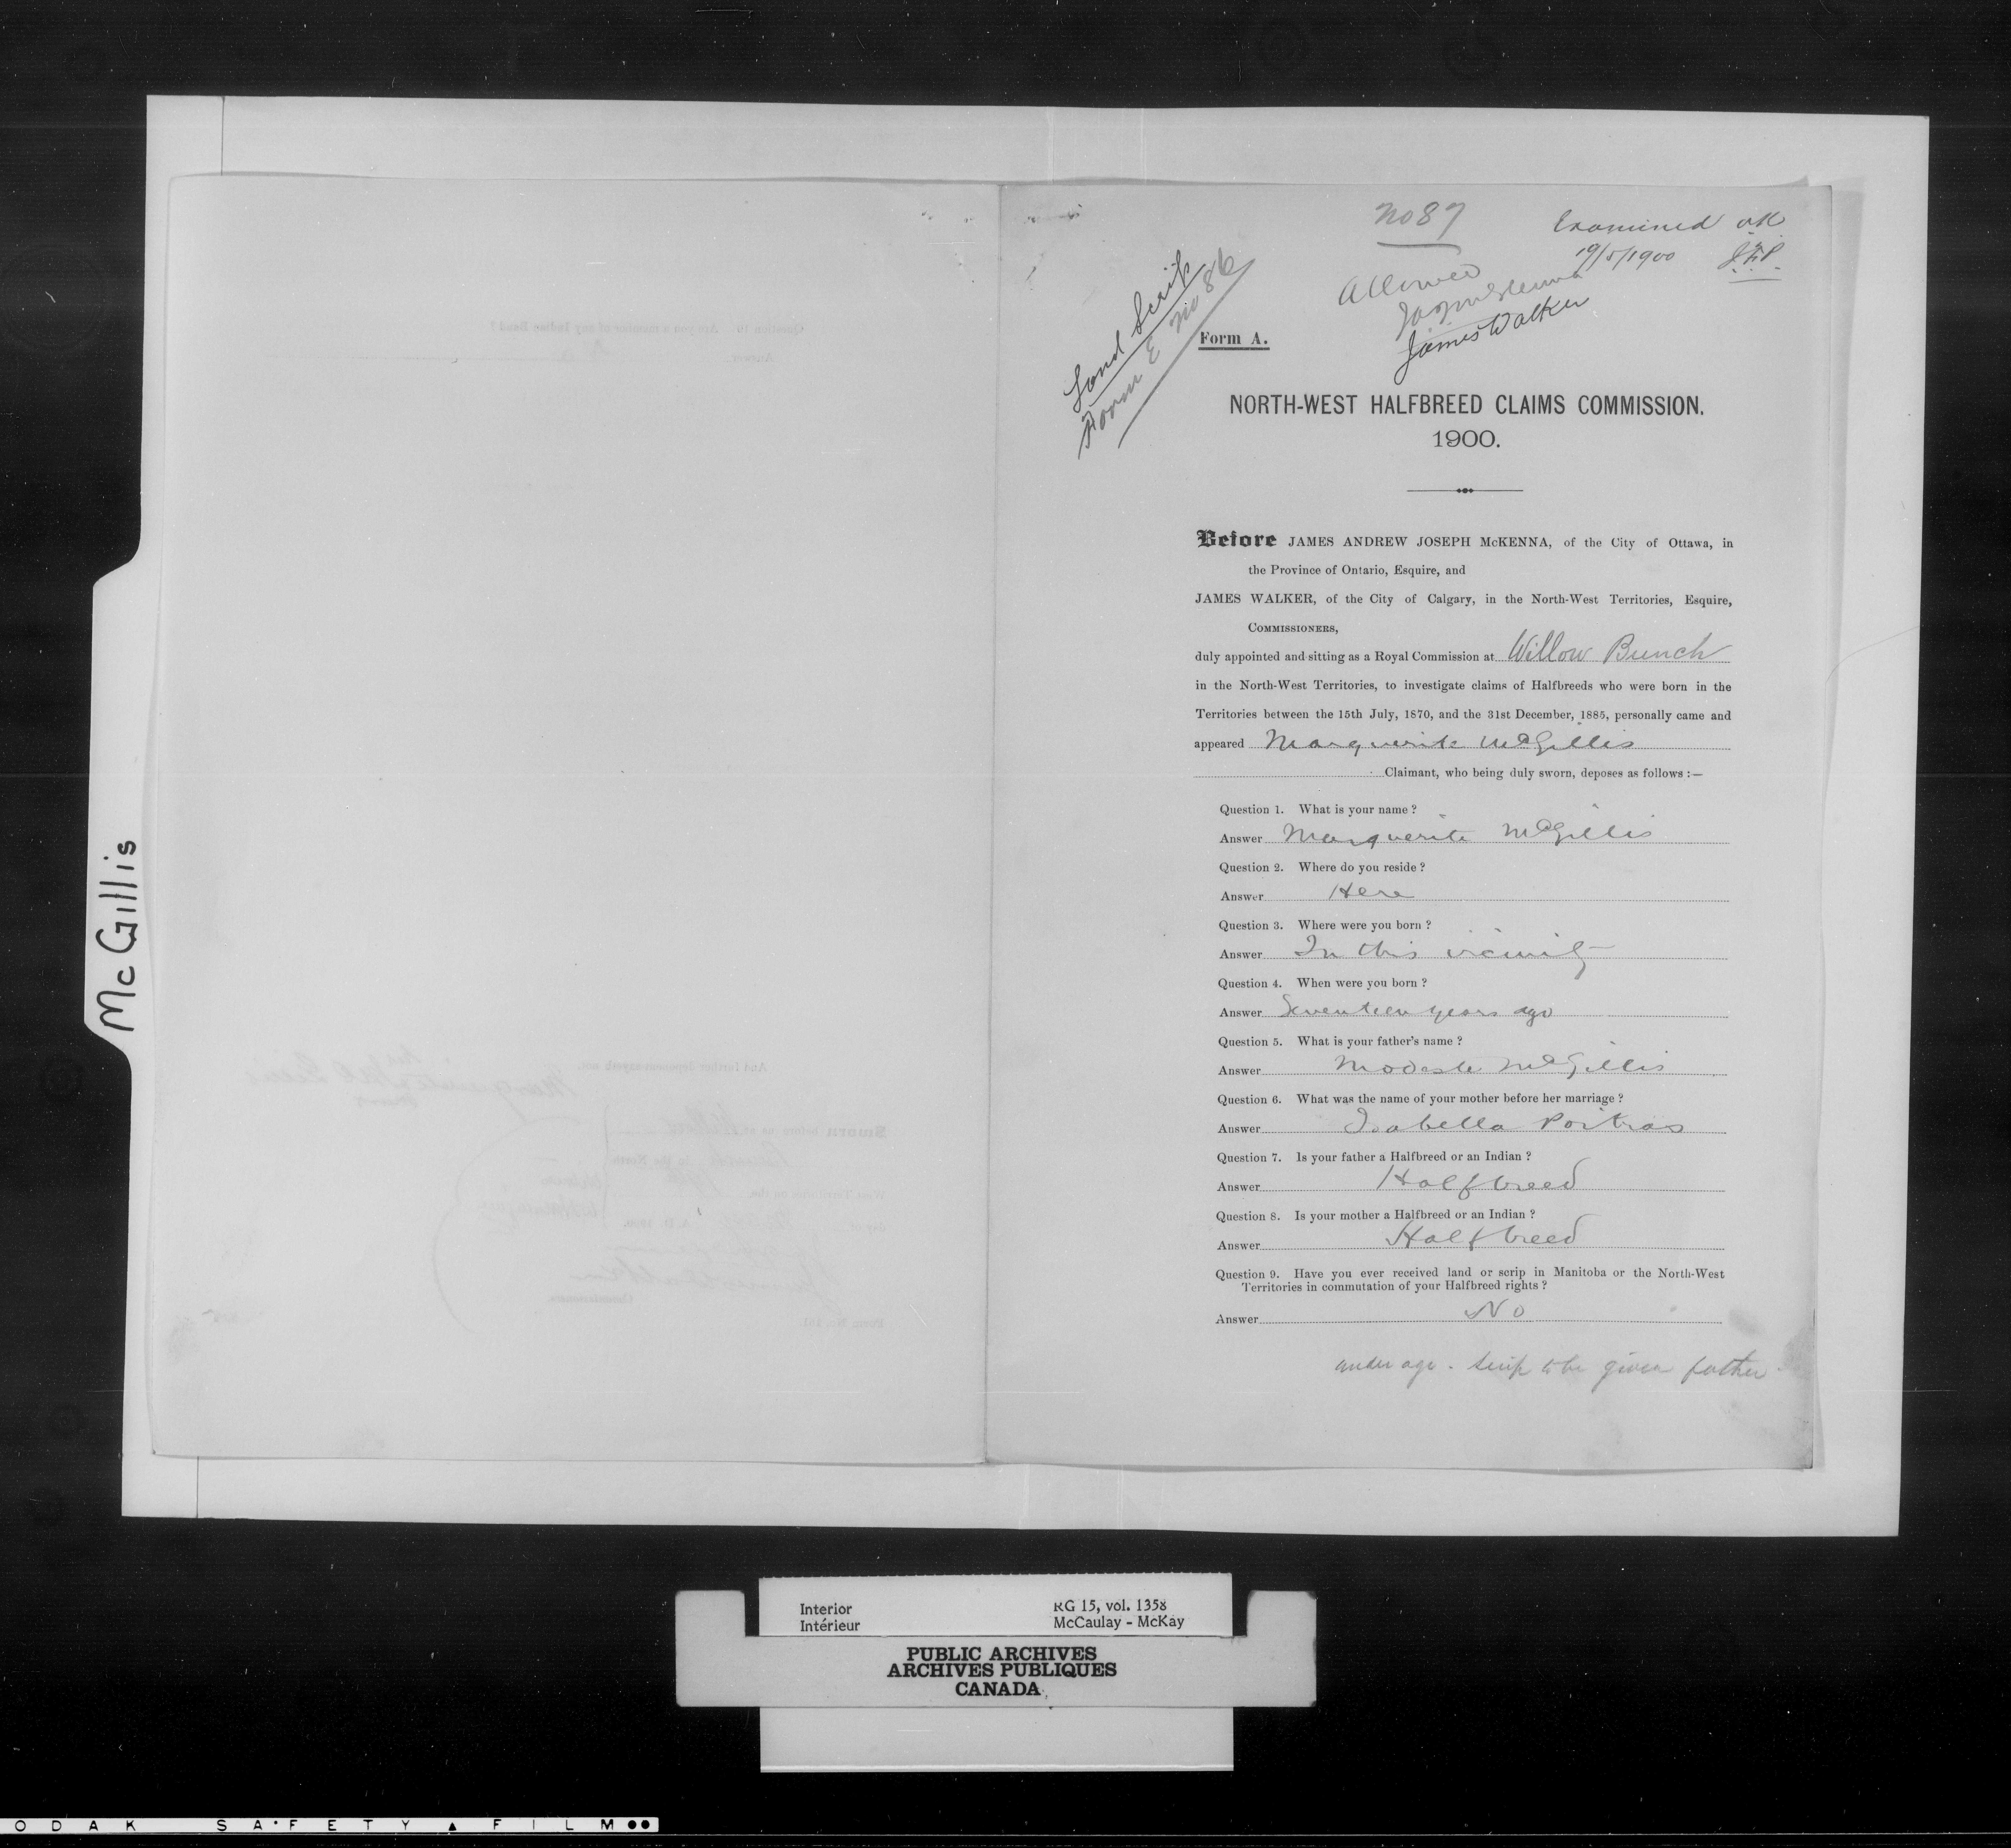 McGillis
No 87
Examined OK
19/5/1900 J.F.P.
Allowed
JAJMcKenna
James Walker
Land Scrip
Form E No 86
Form A.
NORTH-WEST HALFBREED CLAIMS COMMISSION.
1900.
Before JAMES ANDREW JOSEPH McKENNA, of the City of Ottawa, in
the Province of Ontario, Esquire, and
JAMES WALKER, of the City of Calgary, in the North-West Territories, Esquire,
COMMISSIONERS,
duly appointed and sitting as a Royal Commission at Willow Bunch
in the North-West Territories, to investigate claims of Halfbreeds who were born in the
Territories between the 15th July, 1870, and the 31st December, 1885, personally came and
appeared Marguerite McGillis
Claimant, who being duly sworn, deposes as follows :—
Question 1. What is your name ?
Answer Marguerite McGillis
Question 2. Where do you reside ?
Answer Here
Question 3. Where were you born ?
Answer In this vicinity
Question 4. When were you born ?
Answer Seventeen years ago
Question 5. What is your father's name ?
Answer Modeste McGillis
Question 6. What was the name of your mother before her marriage ?
Answer Isabella Poitras
Question 7. Is your father a Halfbreed or an Indian ?
Answer Halfbreed
Question 8. Is your mother a Halfbreed or an Indian ?
Answer Halfbreed
Question 9. Have you ever received land or scrip in Manitoba or the North-West
Territories in commutation of your Halfbreed rights ?
Answer No
under age. Scrip to be given father.
Interior RG 15, vol. 1358
Intérieur McCaulay - McKay
PUBLIC ARCHIVES
ARCHIVES PUBLIQUES
CANADA
ODAK SAFETY FILM